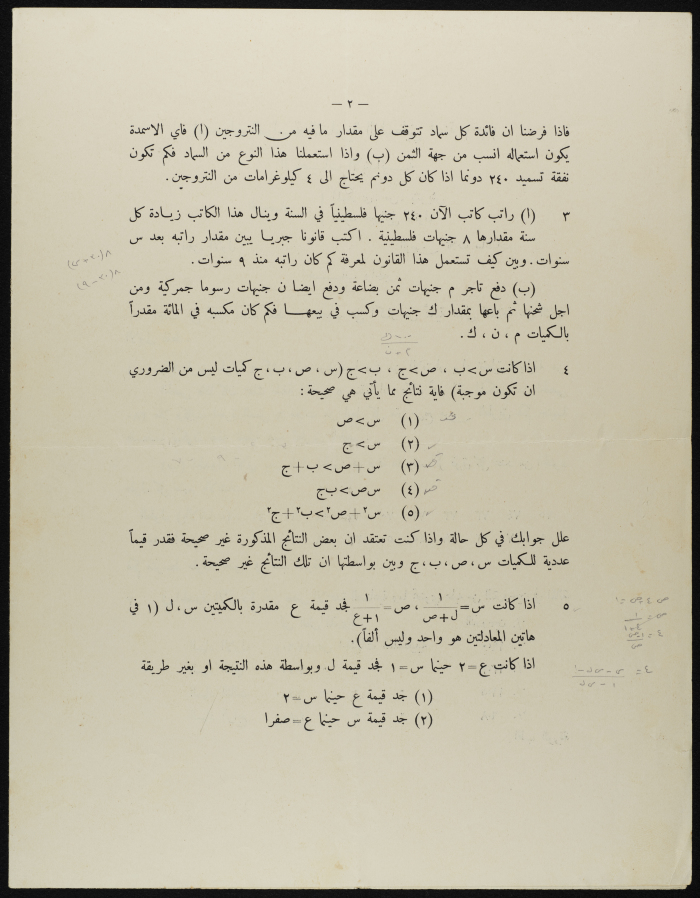 — ٢ —
فاذا فرضنا ان فائدة كل سماد تتوقف على مقدار ما فيه من النتروجين (ا) فاي الاسمدة
يكون استعماله انسب من جهة الثمن (ب) واذا استعملنا هذا النوع من السماد فكم تكون
نفقة تسميد ٢٤٠ دونما اذا كان كل دونم يحتاج الى ٤ كيلوغرامات من النتروجين.
٣ (ا) راتب كاتب الآن ٢٤٠ جنيها فلسطينياً في السنة وينال هذا الكاتب زيادة كل
سنة مقدارها ٨ جنيهات فلسطينية . اكتب قانونا جبريا يبين مقدار راتبه بعد س
سنوات. وبين كيف تستعمل هذا القانون لمعرفة كم كان راتبه منذ ٩ سنوات.
(ب) دفع تاجر م جنيهات ثمن بضاعة ودفع ايضا ن جنيهات رسوما جمركية ومن
اجل شحنها ثم باعها بمقدار ك جنيهات وكسب في بيعها فكم كان مكسبه في المائة مقدراً
بالكميات م ، ن ، ك .
٤ اذا كانت س>ب ، ص>ج ، ب>ج (س ، ص ، ب ، ج كميات ليس من الضروري
ان تكون موجبة) فاية نتائج مما يأتي هي صحيحة :
(١) س>ص
(٢) س>ج
(٣) س+ص>ب+ج
(٤) س ص>ب ج
(٥) س٢+ص٢>ب٢+ج٢
علل جوابك في كل حالة واذا كنت تعتقد ان بعض النتائج المذكورة غير صحيحة فقدر قيماً
عددية للكميات س ، ص ، ب ، ج وبين بواسطتها ان تلك النتائج غير صحيحة .
٥ اذا كانت س=١/(ل+ص) ، ص=١/(١+ع) فجد قيمة ع مقدرة بالكميتين س ، ل (١ في
هاتين المعادلتين هو واحد وليس ألفاً).
اذا كانت ع=٢ حينما س=١ فجد قيمة ل وبواسطة هذه النتيجة او بغير طريقة
(١) جد قيمة ع حينما س=٢
(٢) جد قيمة س حينما ع=صفرا